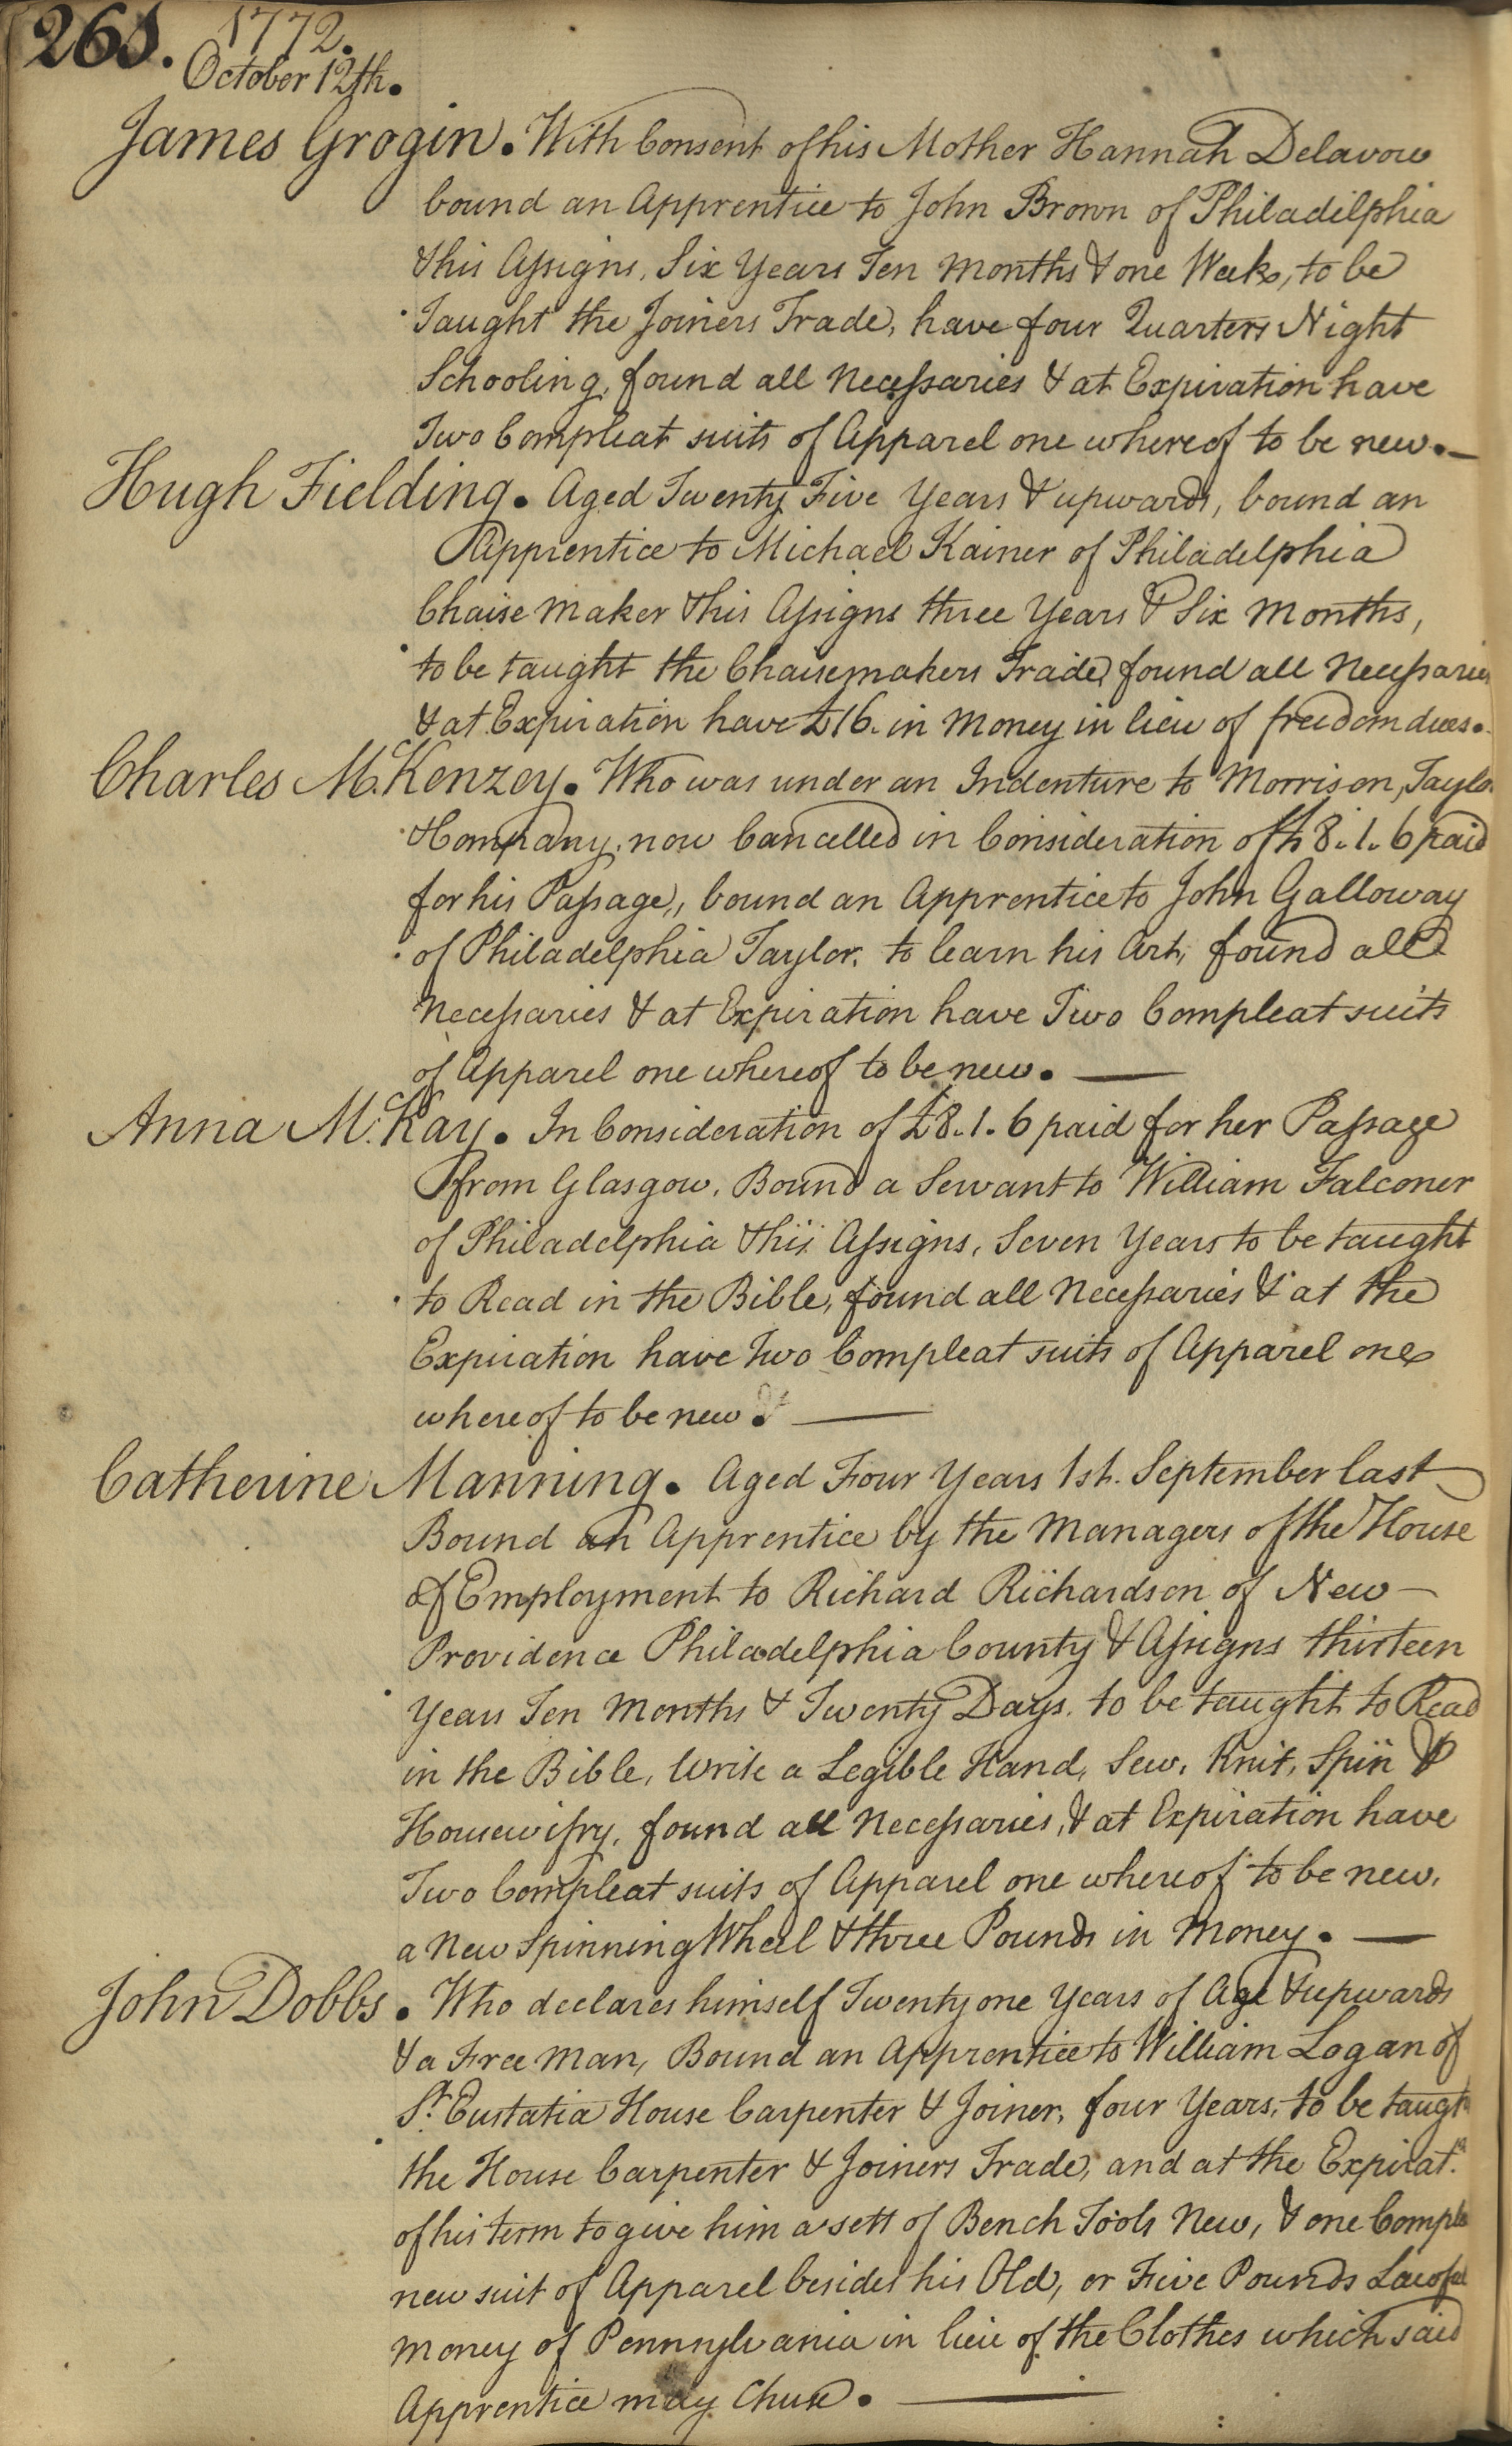 261. 1772.
October 12th.
James Grogin. With Consent of his Mother Hannah Delavow
bound an Apprentice to John Brown of Philadilphia
& his Assigns, Six Years Ten Months & one Week, to be
Taught the Joiners Trade, have four Quarters Night
Schooling, found all Necessaries & at Expiration have
Two Compleat suits of Apparel one whereof to be new. —
Hugh Fielding. Aged Twenty Five Years & upwards, bound an
Apprentice to Michael Kainer of Philadelphia
Chaise maker & his Assigns three Years & Six Months,
to be taught the Chaisemakers Trade, found all Necessaries
& at Expiration have £16. in Money in lieu of freedom dues.
Charles McKenzey. Who was under an Indenture to Morrison, Taylor
& Company, now Cancelled in Consideration of £8.1.6 paid
for his Passage, bound an Apprentice to John Galloway
of Philadelphia Taylor, to learn his Art, found all
Necessaries & at Expiration have Two Compleat suits
of Apparel one whereof to be new. —
Anna McKay. In Consideration of £8.1.6 paid for her Passage
from Glasgow, Bound a Servant to William Falconer
of Philadelphia & his Assigns, Seven Years to be taught
to Read in the Bible, found all Necessaries & at the
Expiration have Two Compleat suits of Apparel one
whereof to be new. —
Catherine Manning. Aged Four Years 1st. September last
Bound an Apprentice by the Managers of the House
of Employment to Richard Richardson of New-
Providence Philadelphia County & Assigns thirteen
Years Ten Months & Twenty Days. to be taught to Read
in the Bible, Write a Legible Hand, Sew, Knit, Spin &
Housewifry, found all Necessaries, & at Expiration have
Two Compleat suits of Apparel one whereof to be new,
a New Spinning Wheel & three Pounds in Money. —
John Dobbs. Who declares himself Twenty one Years of Age & upwards
& a Free Man, Bound an Apprentice to William Logan of
St. Eustatia House Carpenter & Joiner, four Years, to be taught
the House Carpenter & Joiners Trade, and at the Expirat.n
of his term to give him a sett of Bench Tools New, & one Comple
new suit of Apparel besides his Old, or Five Pounds Lawful
Money of Pennsylvania in lieu of the Clothes which said
Apprentice may Chuse. —